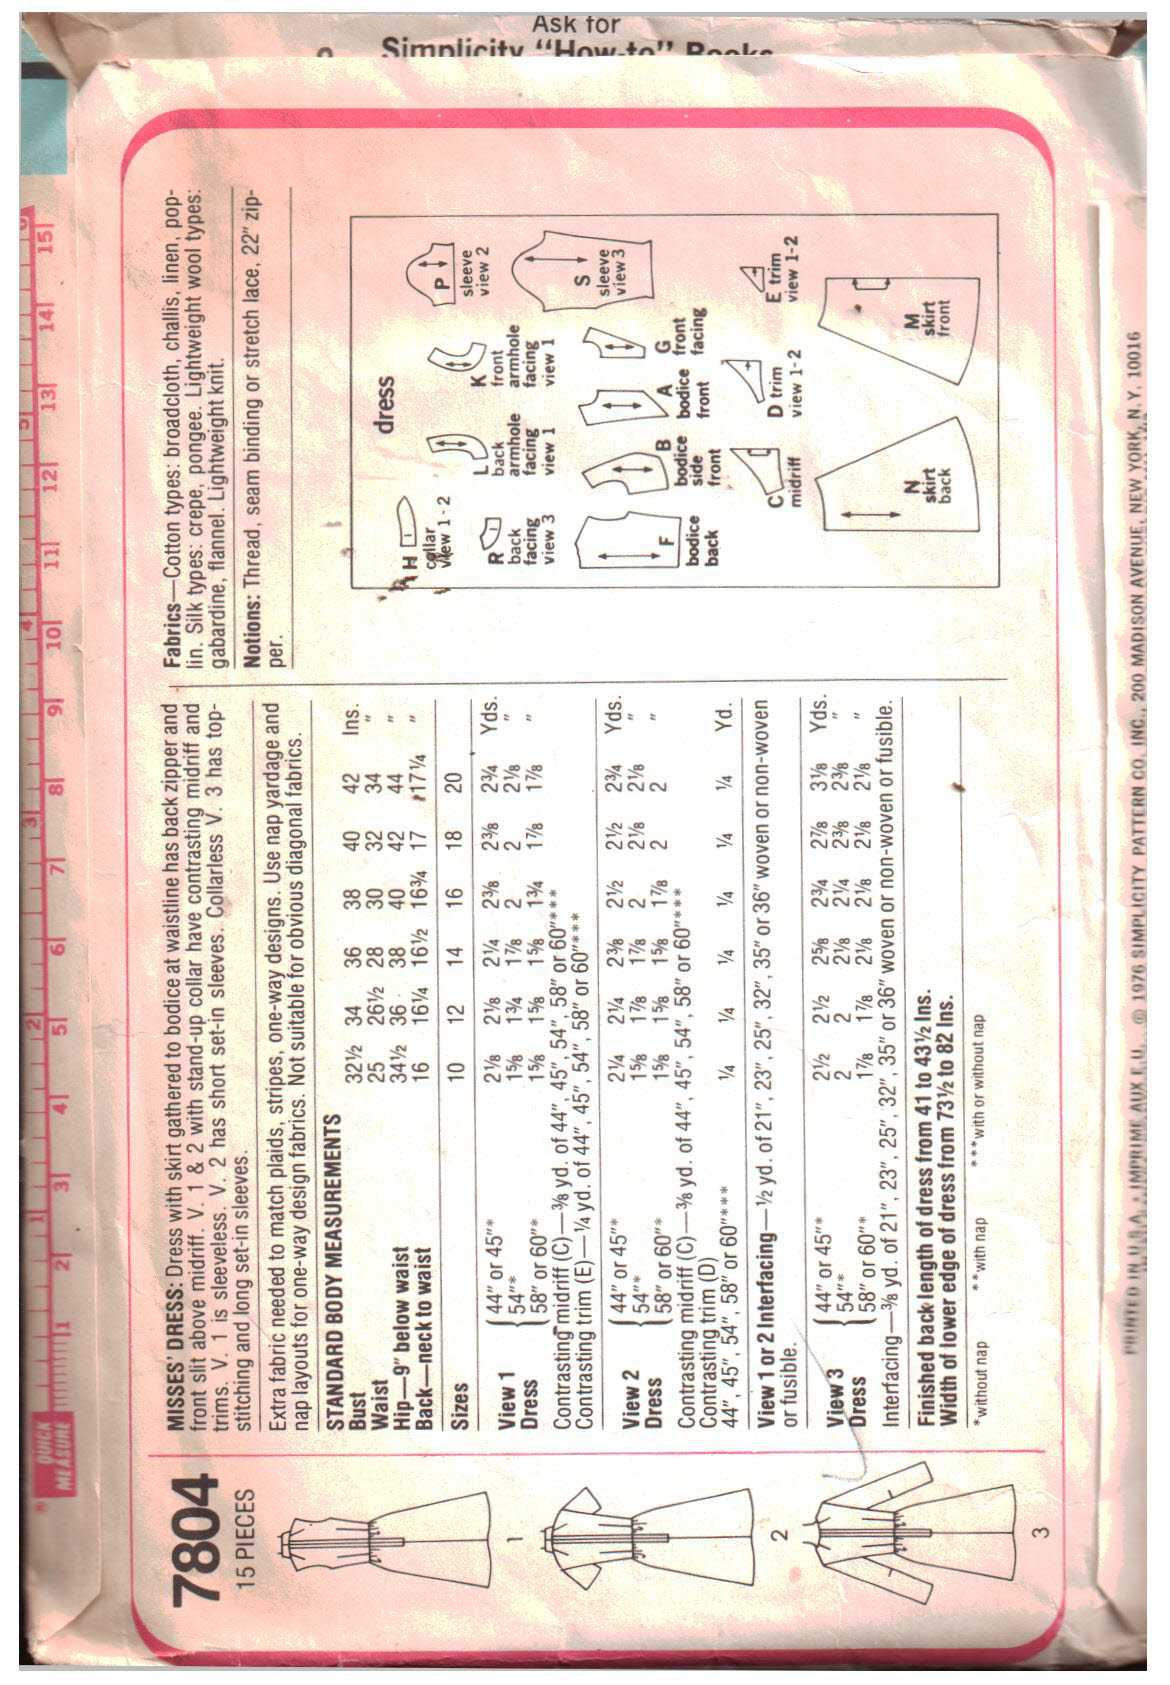 Ask for
Simplicity "How-to" Books
7804
15 PIECES
1
2
3
MISSES' DRESS: Dress with skirt gathered to bodice at waistline has back zipper and
front slit above midriff. V. 1 & 2 with stand-up collar have contrasting midriff and
trims. V. 1 is sleeveless. V. 2 has short set-in sleeves. Collarless V. 3 has top-
stitching and long set-in sleeves.
Extra fabric needed to match plaids, stripes, one-way designs. Use nap yardage and
nap layouts for one-way design fabrics. Not suitable for obvious diagonal fabrics.
STANDARD BODY MEASUREMENTS
Bust 32½ 34 36 38 40 42 Ins.
Waist 25 26½ 28 30 32 34 "
Hip—9" below waist 34½ 36 38 40 42 44 "
Back—neck to waist 16 16¼ 16½ 16¾ 17 17¼ "
Sizes 10 12 14 16 18 20
View 1 { 44" or 45"* 2⅛ 2⅛ 2¼ 2⅜ 2⅜ 2¾ Yds.
Dress 54"* 1⅝ 1¾ 1⅞ 2 2 2⅛ "
58" or 60"* 1⅝ 1⅝ 1⅝ 1¾ 1⅞ 1⅞ "
Contrasting midriff (C)—⅜ yd. of 44", 45", 54", 58" or 60"***
Contrasting trim (E)—¼ yd. of 44", 45", 54", 58" or 60"***
View 2 { 44" or 45"* 2¼ 2¼ 2⅜ 2½ 2½ 2¾ Yds.
Dress 54"* 1⅝ 1⅞ 1⅞ 2 2⅛ 2⅛ "
58" or 60"* 1⅝ 1⅝ 1⅝ 1⅞ 2 2 "
Contrasting midriff (C)—⅜ yd. of 44", 45", 54", 58" or 60"***
Contrasting trim (D)
44", 45", 54", 58" or 60"*** ¼ ¼ ¼ ¼ ¼ ¼ Yd.
View 1 or 2 Interfacing—½ yd. of 21", 23", 25", 32", 35" or 36" woven or non-woven
or fusible.
View 3 { 44" or 45"* 2½ 2½ 2⅝ 2¾ 2⅞ 3⅛ Yds.
Dress 54"* 2 2 2⅛ 2¼ 2⅜ 2⅜ "
58" or 60"* 1⅞ 1⅞ 2⅛ 2⅛ 2⅛ 2⅛ "
Interfacing—⅜ yd. of 21", 23", 25", 32", 35" or 36" woven or non-woven or fusible.
Finished back length of dress from 41 to 43½ Ins.
Width of lower edge of dress from 73½ to 82 Ins.
*without nap **with nap ***with or without nap
Fabrics—Cotton types: broadcloth, challis, linen, pop-
lin. Silk types: crepe, pongee. Lightweight wool types:
gabardine, flannel. Lightweight knit.
Notions: Thread, seam binding or stretch lace, 22" zip-
per.
dress
H
collar
view 1-2
L
back
armhole
facing
view 1
K
front
armhole
facing
view 1
P
sleeve
view 2
R
back
facing
view 3
S
sleeve
view 3
F
bodice
back
B
bodice
side
front
A
bodice
front
G
front
facing
C
midriff
D trim
view 1-2
E trim
view 1-2
N
skirt
back
M
skirt
front
PRINTED IN U.S.A. • IMPRIME AUX E.U. © 1976 SIMPLICITY PATTERN CO. INC., 200 MADISON AVENUE, NEW YORK, N.Y. 10016
QUICK
MEASURE
1 2 3 4 5 6 7 8 9 10 11 12 13 14 15
1 2 3 4 5 6